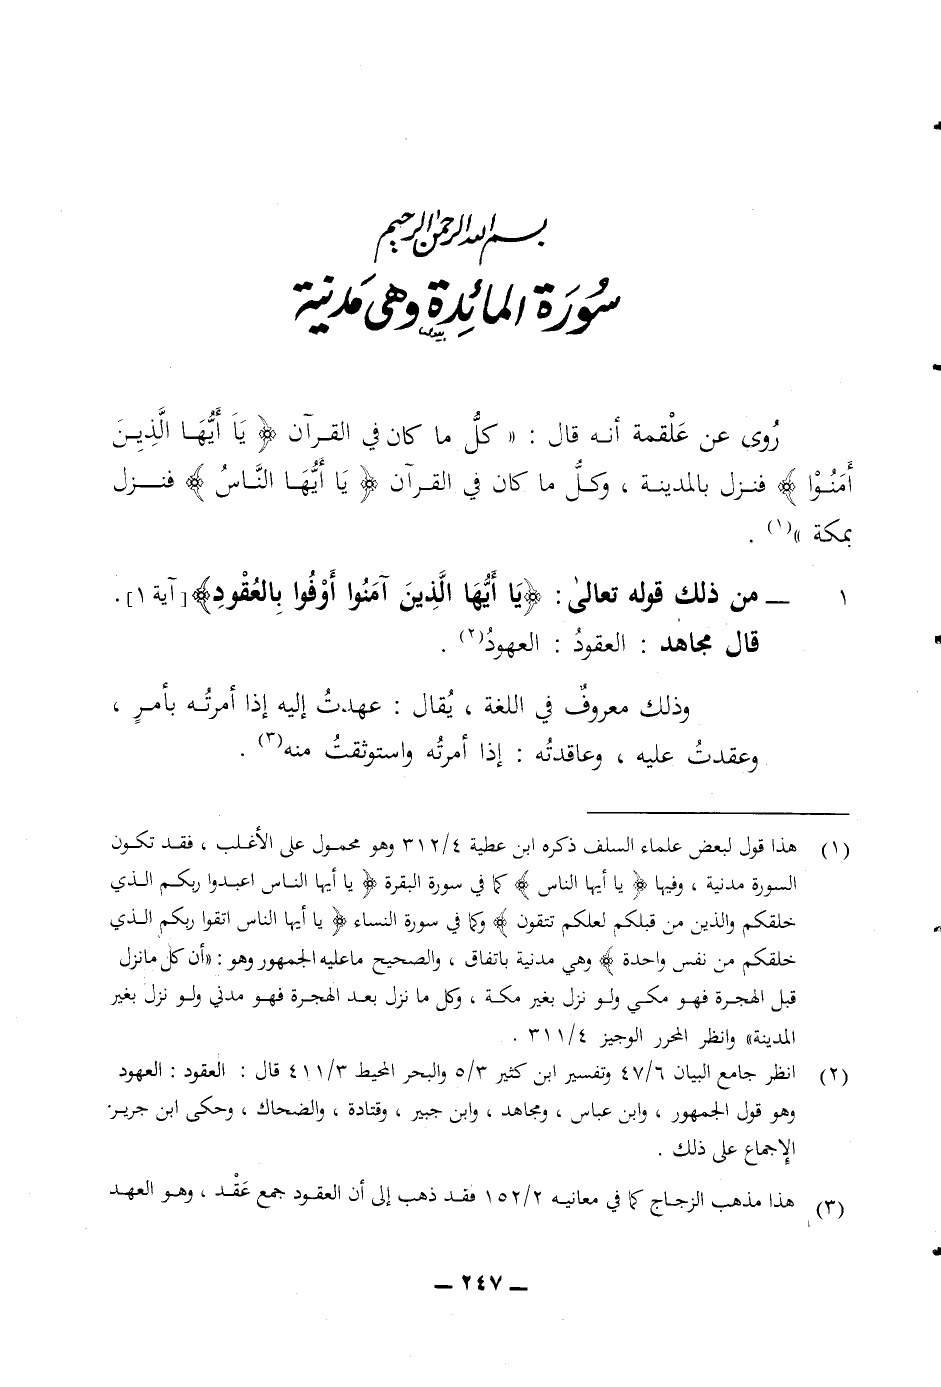 بسم الله الرحمن الرحيم
سُورَة المائِدة وهي مَدنية
رُوى عن عَلْقمة أنه قال : « كلُّ ما كان في القرآن ﴿ يَا أَيُّهَا الَّذِينَ
أَمَنُوْا ﴾ فنزل بالمدينة ، وكلُّ ما كان في القرآن ﴿ يَا أَيُّهَا النَّاسُ ﴾ فنزل
بمكة »(١) .
١ ـ من ذلك قوله تعالىٰ : ﴿يَا أَيُّهَا الَّذِينَ آمَنُوا أَوْفُوا بِالعُقُودِ﴾ [ آية ١] .
قال مجاهد : العقودُ : العهودُ(٢) .
وذلك معروفٌ في اللغة ، يُقال : عهدتُ إليه إذا أمرتُه بأمرٍ ،
وعقدتُ عليه ، وعاقدتُه : إذا أمرتُه واستوثقتُ منه(٣) .
(١) هذا قول لبعض علماء السلف ذكره ابن عطية ٣١٢/٤ وهو محمول على الأغلب ، فقد تكون
السورة مدنية ، وفيها ﴿ يا أيها الناس ﴾ كما في سورة البقرة ﴿ يا أيها الناس اعبدوا ربكم الذي
خلقكم والذين من قبلكم لعلكم تتقون ﴾ وكما في سورة النساء ﴿ يا أيها الناس اتقوا ربكم الذي
خلقكم من نفس واحدة ﴾ وهي مدنية باتفاق ، والصحيح ماعليه الجمهور وهو : «أن كل مانزل
قبل الهجرة فهو مكي ولو نزل بغير مكة ، وكل ما نزل بعد الهجرة فهو مدني ولو نزل بغير
المدينة» وانظر المحرر الوجيز ٣١١/٤ .
(٢) انظر جامع البيان ٤٧/٦ وتفسير ابن كثير ٥/٣ والبحر المحيط ٤١١/٣ قال : العقود : العهود
وهو قول الجمهور ، وابن عباس ، ومجاهد ، وابن جبير ، وقتادة ، والضحاك ، وحكى ابن جرير
الإجماع على ذلك .
(٣) هذا مذهب الزجاج كما في معانيه ١٥٢/٢ فقد ذهب إلى أن العقود جمع عَقْد ، وهو العهد
ـ ٢٤٧ ـ